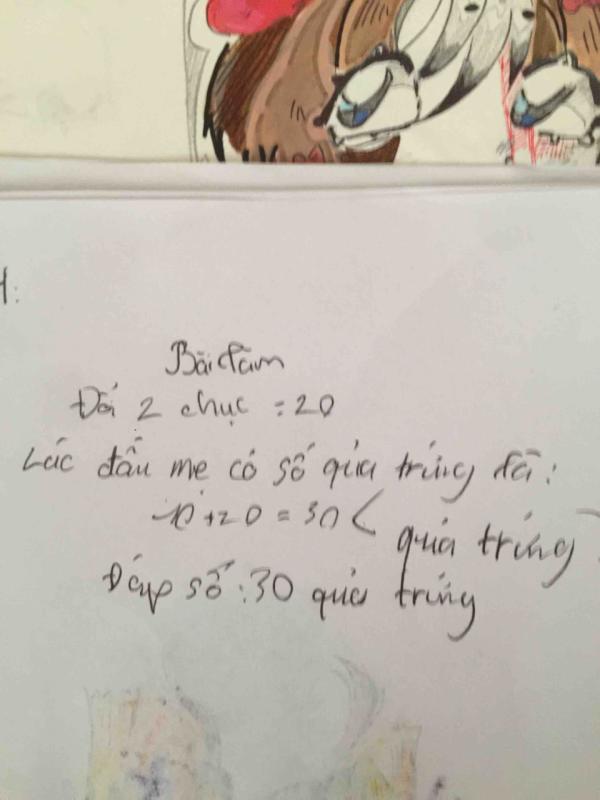 Bài làm
Đổi 2 chục = 20
Lúc đầu mẹ có số quả trứng là:
10 + 20 = 30 ( quả trứng )
Đáp số : 30 quả trứng